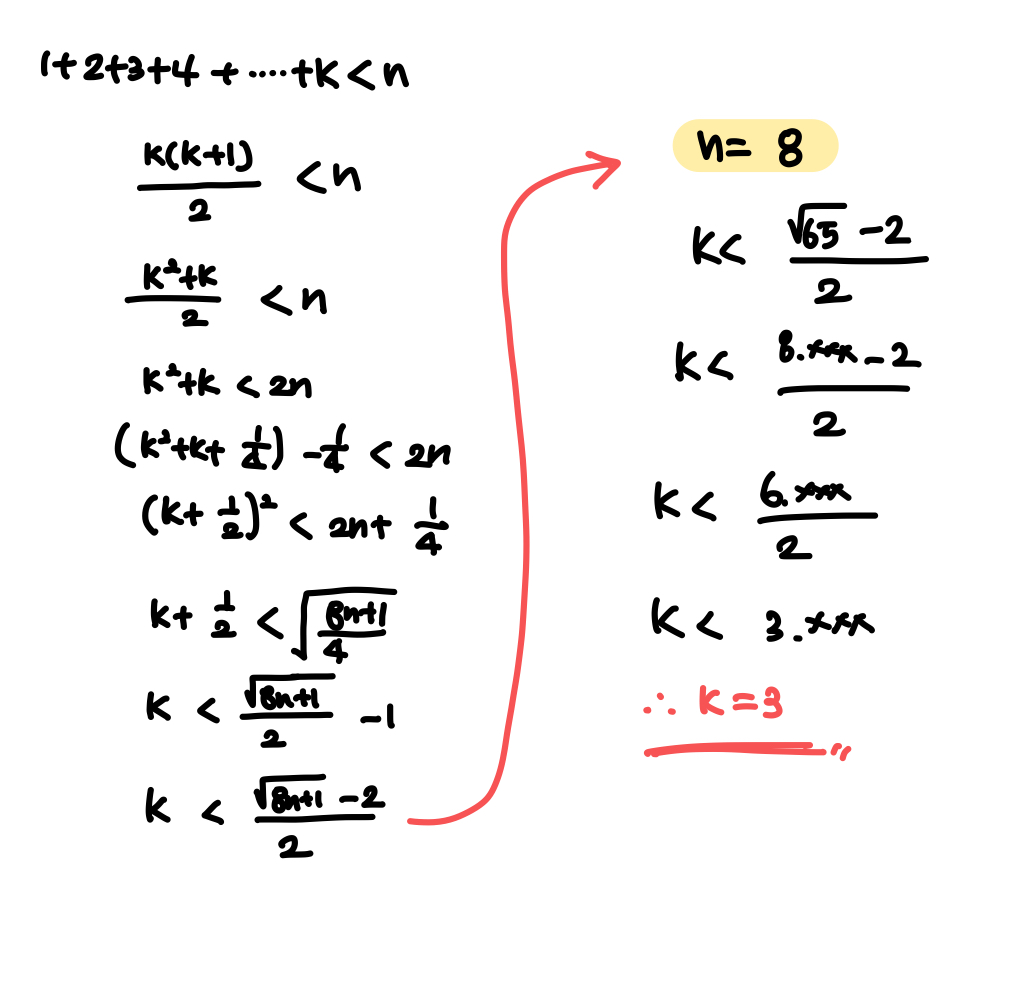 1+2+3+4+·····+K<n
K(K+1)/2 <n
K²+K/2 <n
K²+K <2n
(K²+K+1/4)-1/4 <2n
(K+1/2)² <2n+1/4
K+1/2 <√(8n+1/4)
K < √8n+1/2 -1
K < √8n+1 -2/2
n= 8
K< √65 -2/2
K< 8.xxx-2/2
K< 6.xxx/2
K< 3.xxx
∴ K=3